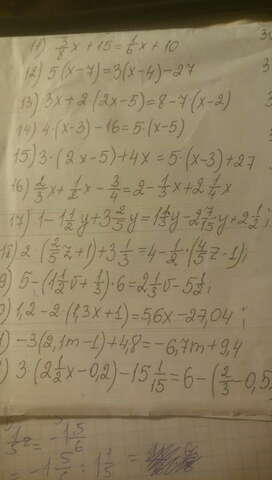 11) 3/8 x + 15 = 1/6 x + 10
12) 5·(x-7) = 3(x-4) - 27
13) 3x + 2·(2x-5) = 8 - 7·(x-2)
14) 4·(x-3) - 16 = 5·(x-5)
15) 3·(2x-5) + 4x = 5·(x-3) + 27
16) 1/3 x + 1/2 x - 3/4 = 2 - 1/3 x + 2 1/4 x
17) 1 - 1 1/2 y + 3 2/5 y = 1 1/3 y - 2 7/15 y + 2 1/2;
18) 2·(2/5 z + 1) + 3 1/3 = 4 - 1/2·(4/5 z - 1);
9) 5 - (1 1/2 v + 1/3)·6 = 2 1/3 v - 5 1/2;
) 1,2 - 2·(1,3x + 1) = 5,6x - 27,04;
) -3(2,1m - 1) + 4,8 = -6,7m + 9,4
) 3·(2 1/2 x - 0,2) - 15 1/15 = 6 - (2/3 - 0,5
= -1 5/6
= -1 5/6 : 1 1/3 =